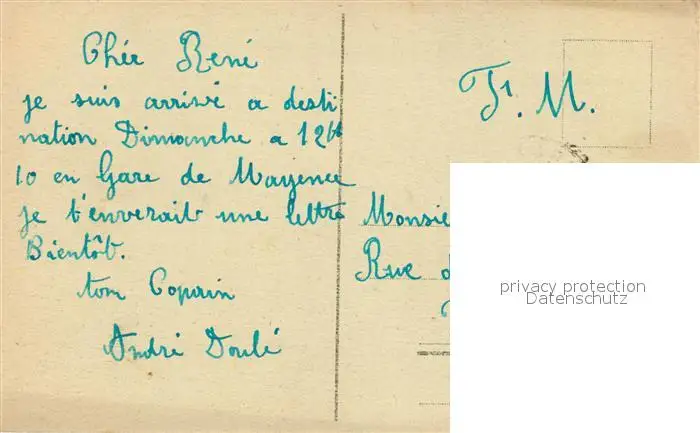 Chér René
je suis arrivé a desti
nation Dimanche a 12h
10 en Gare de Mayence
je t'enverait une lettre
Bientôt.
tom Copain
André Doulé
F. M.
Monsie
Rue d
privacy protection
Datenschutz